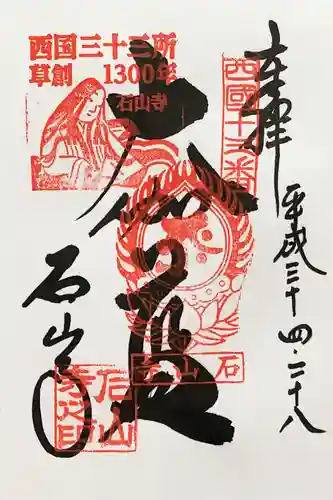 奉拝
平成三十四・二十八
西国十三番
大伽藍
石山寺
西国三十三所
草創 1300年
石山寺
石山寺
石山寺之印